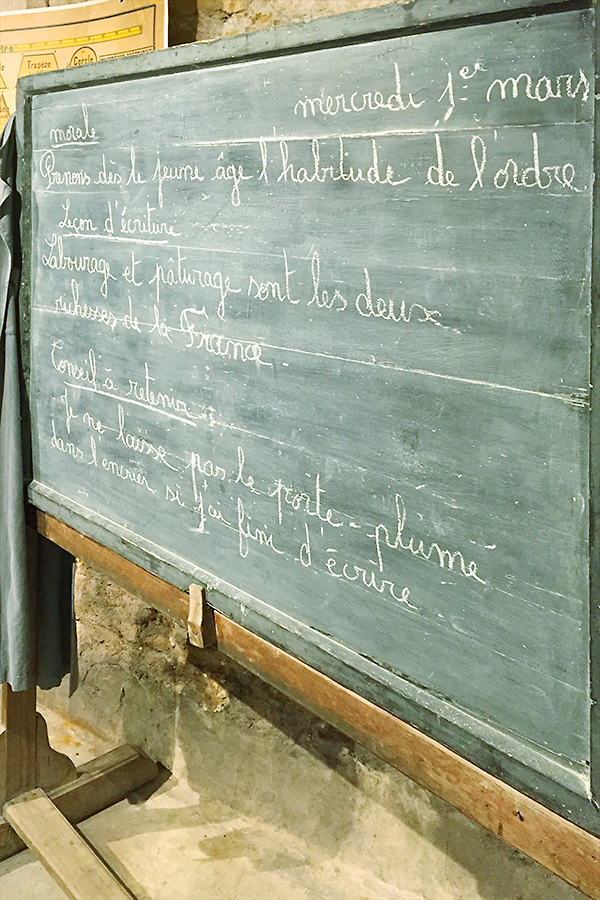 Trapèze
Cercle
mercredi 1er mars
morale
Prenons dès le jeune âge l'habitude de l'ordre
Leçon d'écriture
Labourage et pâturage sont les deux
richesses de la France
Conseil à retenir
Je ne laisse pas le porte-plume
dans l'encrier si j'ai fini d'écrire